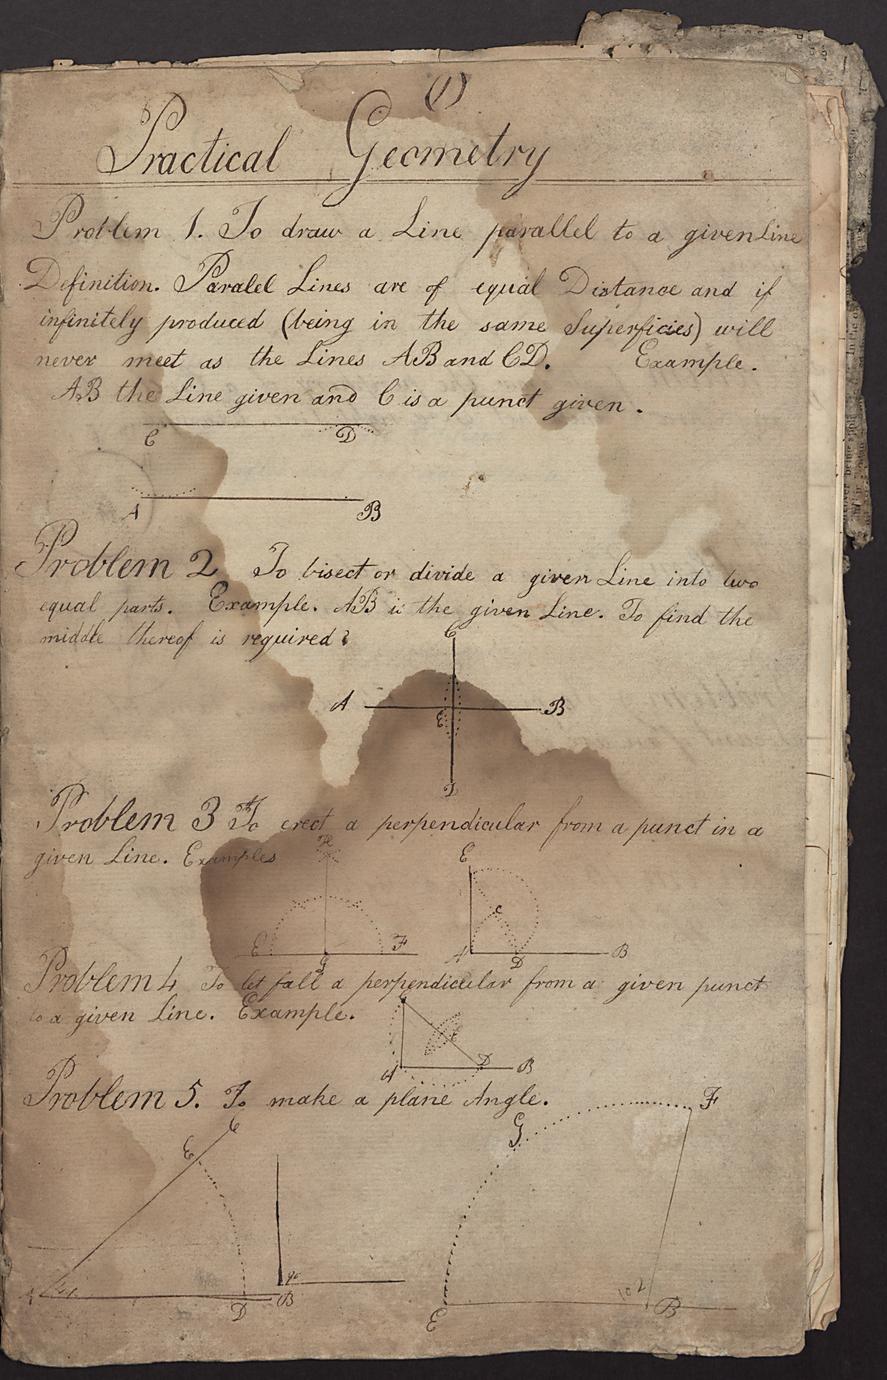 (1)
Practical Geometry
Problem 1. To draw a Line parallel to a given Line
Definition. Paralel Lines are of equal Distance and if
infinitely produced (being in the same Superficies) will
never meet as the Lines AB and CD. Example.
AB the Line given and C is a punct given.
C D
A B
Problem 2 To bisect or divide a given Line into two
equal parts. Example. AB is the given Line. To find the
middle thereof is required?
C
A E B
D
Problem 3 To erect a perpendicular from a punct in a
given Line. Examples
E
C
E G F A D B
Problem 4 To let fall a perpendicular from a given punct
to a given Line. Example.
C
A D B
Problem 5. To make a plane Angle.
E C G F
A D B 90 E 102 B